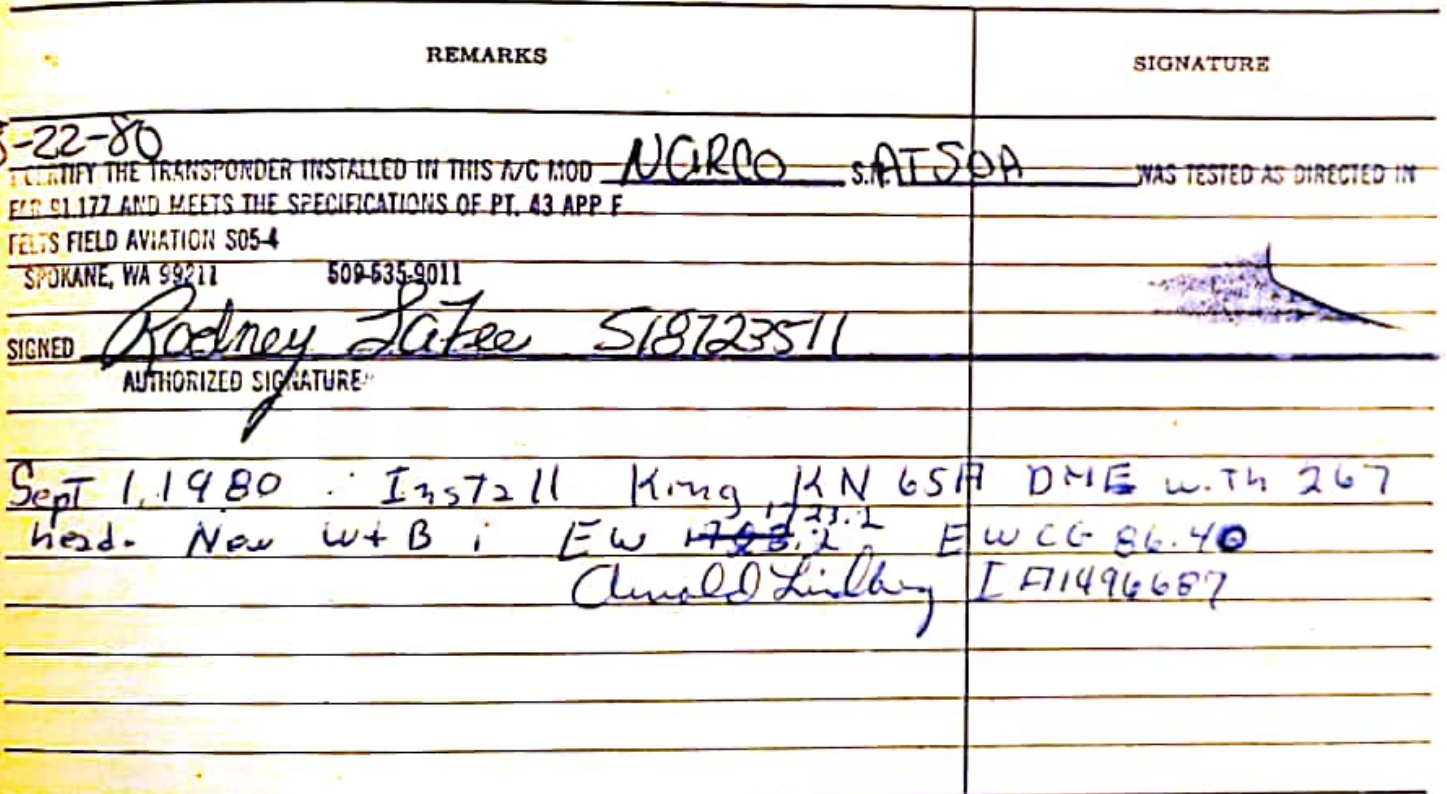 REMARKS SIGNATURE
-22-80
I CERTIFY THE TRANSPONDER INSTALLED IN THIS A/C MOD NARCO S.N. AT50A WAS TESTED AS DIRECTED IN
FAR 91.177 AND MEETS THE SPECIFICATIONS OF PT. 43 APP F
FELTS FIELD AVIATION S05-4
SPOKANE, WA 99211 509-535-9011
SIGNED Rodney LaFee 518723511
AUTHORIZED SIGNATURE
Sept 1, 1980 : Install King KN 65A DME with 267
head. New W+B ; EW 1723.2 EWCG 86.40
Arnold IA1496687